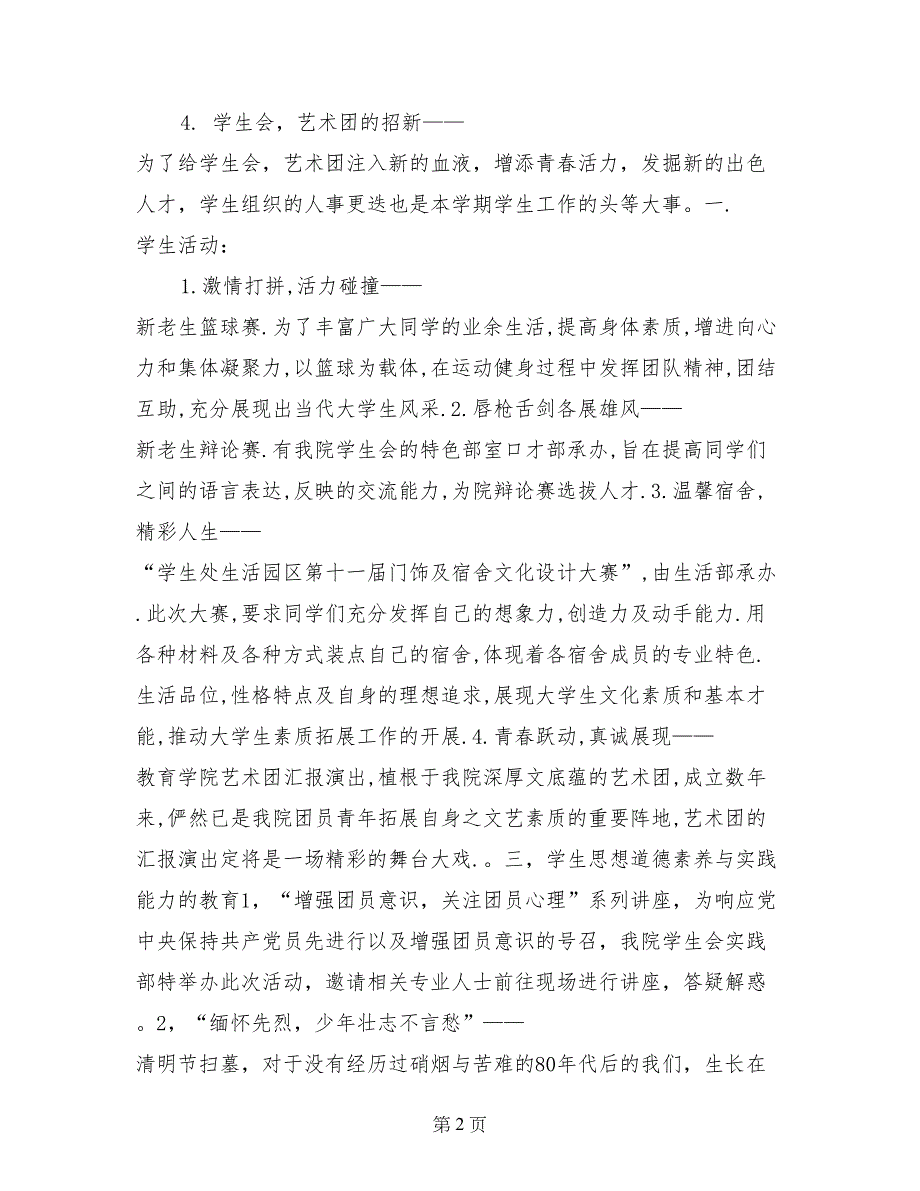 4. 学生会，艺术团的招新——
为了给学生会，艺术团注入新的血液，增添青春活力，发掘新的出色
人才，学生组织的人事更迭也是本学期学生工作的头等大事。一.
学生活动：
1.激情打拼,活力碰撞——
新老生篮球赛.为了丰富广大同学的业余生活,提高身体素质,增进向心
力和集体凝聚力,以篮球为载体,在运动健身过程中发挥团队精神,团结
互助,充分展现出当代大学生风采.2.唇枪舌剑各展雄风——
新老生辩论赛.有我院学生会的特色部室口才部承办,旨在提高同学们
之间的语言表达,反映的交流能力,为院辩论赛选拔人才.3.温馨宿舍,
精彩人生——
“学生处生活园区第十一届门饰及宿舍文化设计大赛”,由生活部承办
.此次大赛,要求同学们充分发挥自己的想象力,创造力及动手能力.用
各种材料及各种方式装点自己的宿舍,体现着各宿舍成员的专业特色.
生活品位,性格特点及自身的理想追求,展现大学生文化素质和基本才
能,推动大学生素质拓展工作的开展.4.青春跃动,真诚展现——
教育学院艺术团汇报演出,植根于我院深厚文底蕴的艺术团,成立数年
来,俨然已是我院团员青年拓展自身之文艺素质的重要阵地,艺术团的
汇报演出定将是一场精彩的舞台大戏.。三，学生思想道德素养与实践
能力的教育1，“增强团员意识，关注团员心理”系列讲座，为响应党
中央保持共产党员先进行以及增强团员意识的号召，我院学生会实践
部特举办此次活动，邀请相关专业人士前往现场进行讲座，答疑解惑
。2，“缅怀先烈，少年壮志不言愁”——
清明节扫墓，对于没有经历过硝烟与苦难的80年代后的我们，生长在
第 2 页